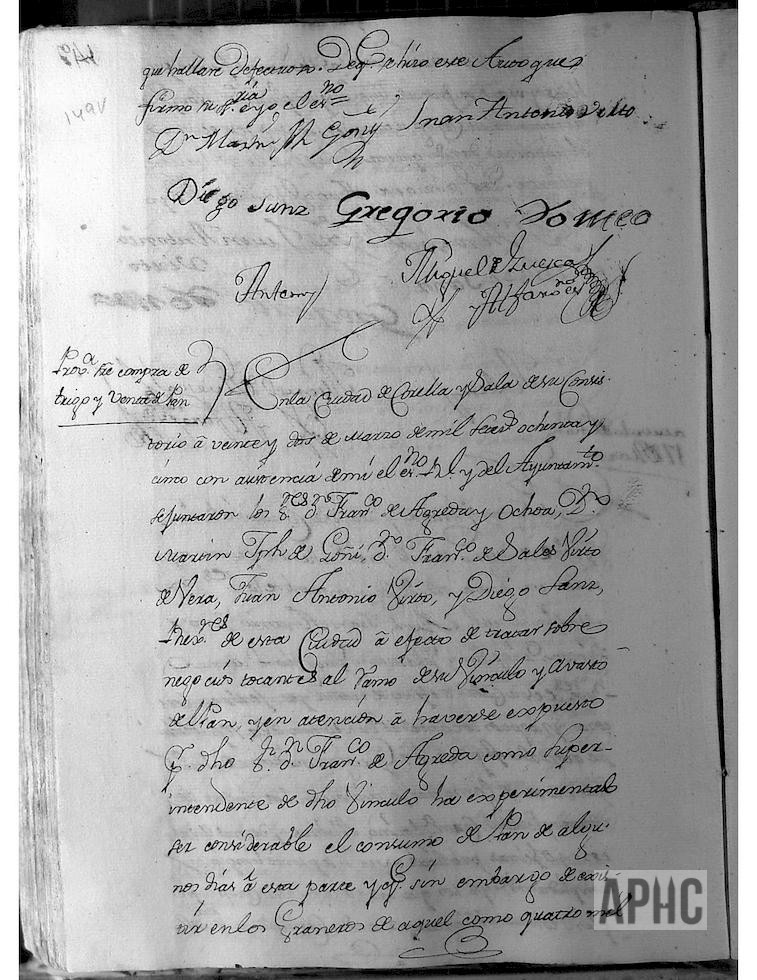 149
149v
que hallare defectuoso. De q.e se hizo este Auto que
firmo su s.ría e yo el es.no =
D.n Martin Jph Goñi Juan Antonio Virto
Diego Sanz Gregorio Domeo
Antemi Miguel de Zuesca
y Alfaro es.no
Prov.a sre compra de
trigo y Venta de Pan
En la Ciudad de Corella y Sala de su Consis-
torio â veinte y dos de Marzo de mil setez.s ochenta y
cinco con asistencia de mi el es.no Rl. y del Ayuntam.to
se juntaron los s.res d.n Fran.co de Agreda y Ochoa, D.n
Martin Jph de Goñi, d.n Fran.co de Sales Virto
de Vera, Juan Antonio Virto, y Diego Sanz,
Rex.res de esta Ciudad â efecto de tratar sobre
negocios tocantes al ramo de su Vinculo y avasto
de Pan, y en atención â haverse expuesto
p.r dho s.r d.n Fran.co de Agreda como Super-
intendente de dho Vinculo ha experimentado
ser considerable el consumo de Pan de algu-
nos dias â esta parte y q.e sin embargo de exis-
tir en los Graneros de aquel como quatro mil
APHC